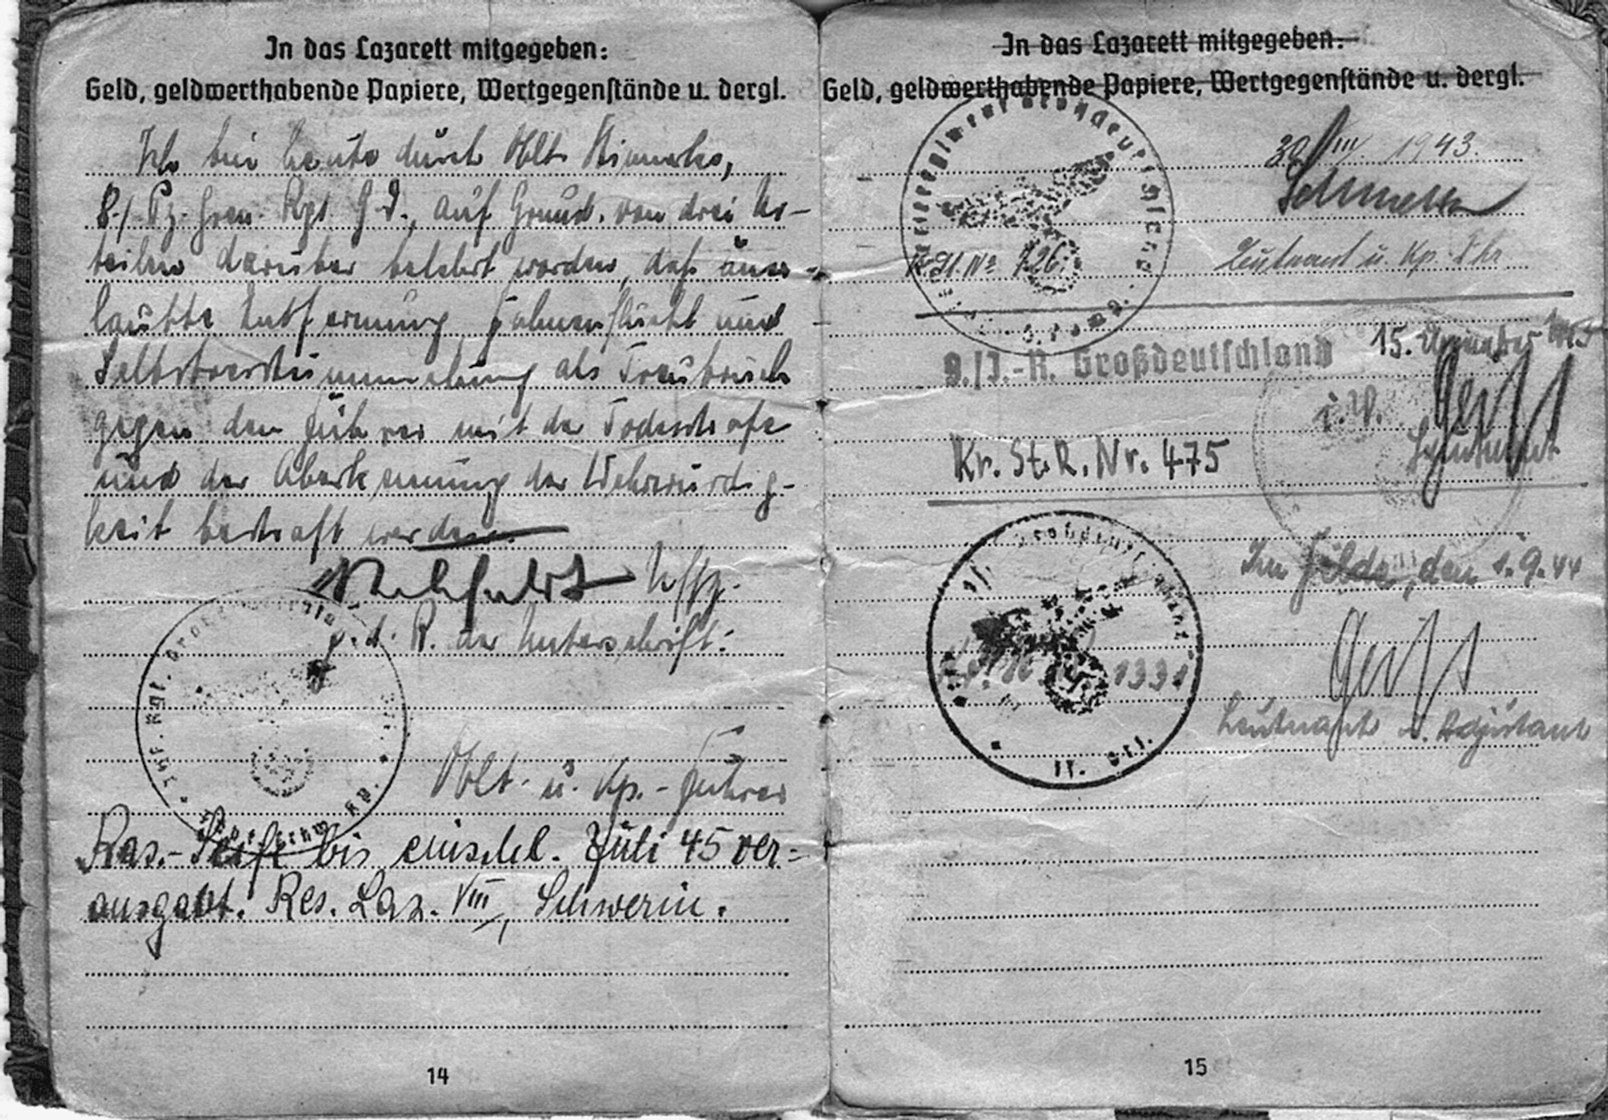 In das Lazarett mitgegeben:
Geld, geldwerthabende Papiere, Wertgegenstände u. dergl.
Ich bin heute durch Oblt.
8./Pz. Gren. Rgt. G.D., auf Grund von drei Ur-
teilen darüber belehrt worden, daß uner-
laubte Entfernung Fahnenflucht und
Selbstverstümmelung als Treubruch
gegen den Führer mit der Todesstrafe
und der Aberkennung der Wehrwürdig-
keit bestraft werden.
Uffz.
F. d. R. der Unterschrift:
Oblt. u. Kp.-Führer
Ras.-Seife bis einschl. Juli 45 ver-
ausgabt. Res. Laz. VIII, Schwerin.
14
In das Lazarett mitgegeben:
Geld, geldwerthabende Papiere, Wertgegenstände u. dergl.
30. VIII. 1943
Leutnant u. Kp. Fhr
K. St. Nr. 726
9./J.-R. Großdeutschland
15.
i.V.
Leutnant
Kr. St. R. Nr. 475
Im Felde, den 1.9.44
1331
Leutnant u. Adjutant
II
15